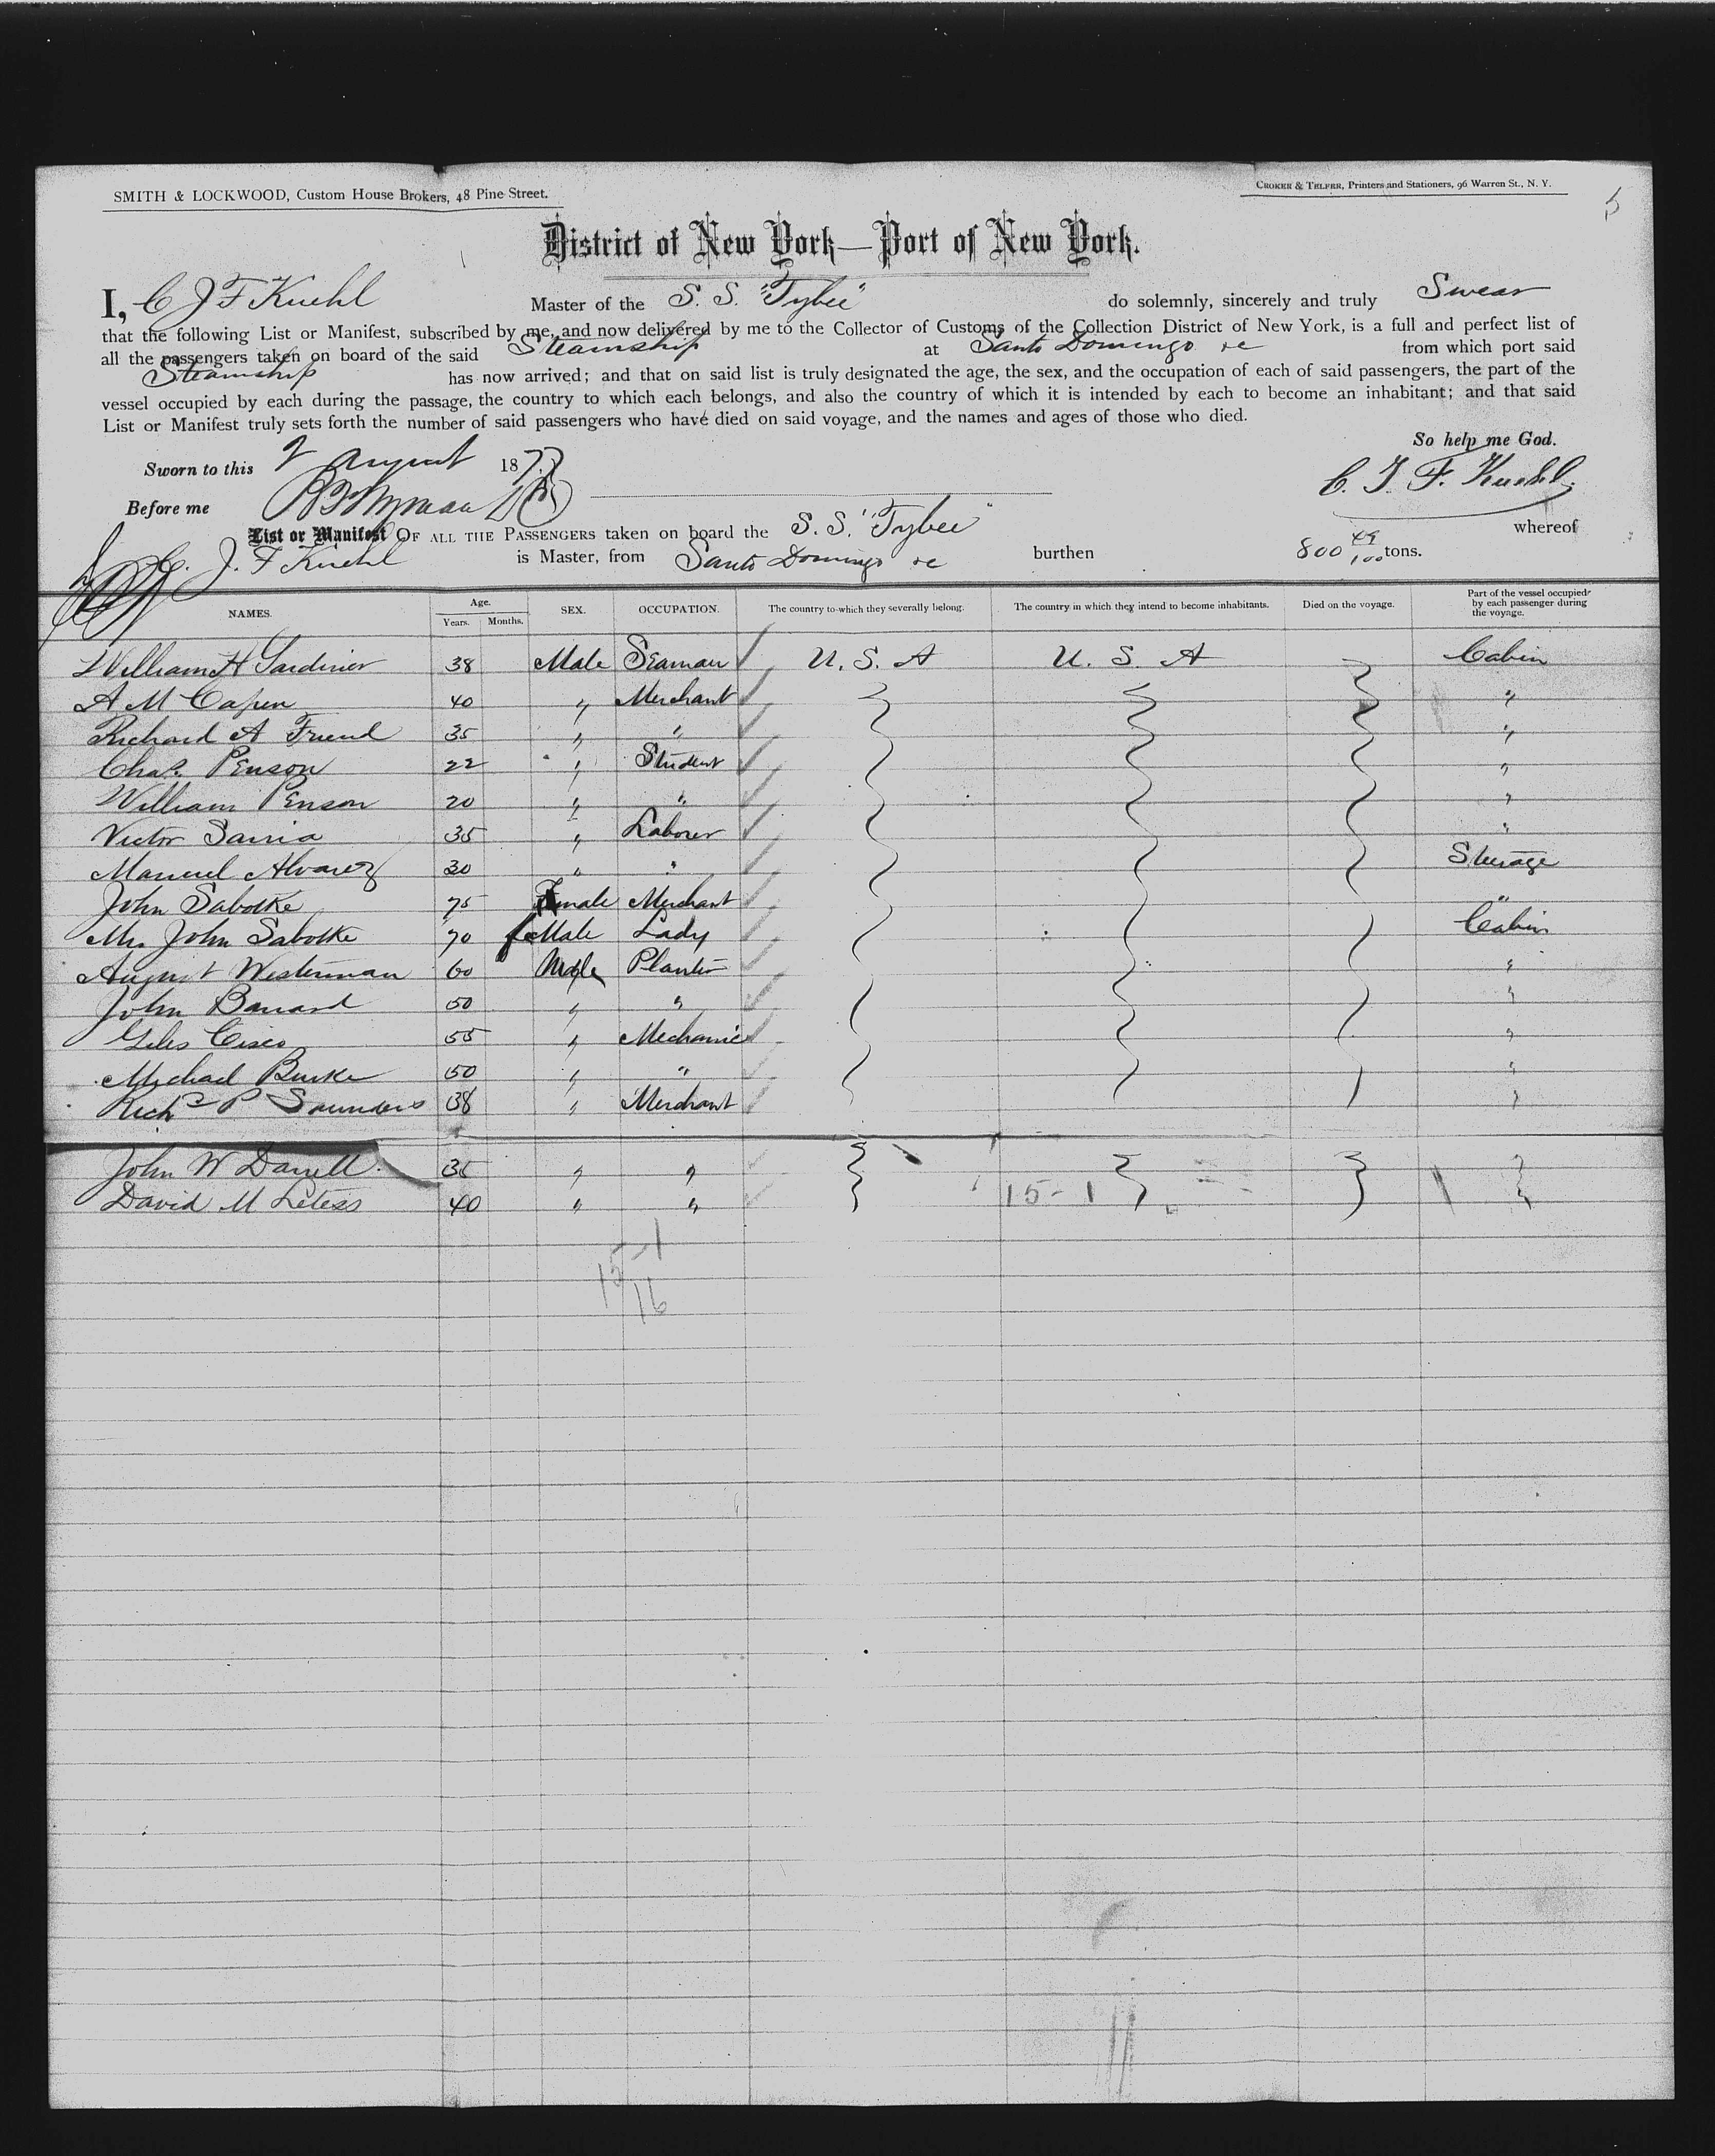 SMITH & LOCKWOOD, Custom House Brokers, 48 Pine Street.
CROKER & TELFER, Printers and Stationers, 96 Warren St., N. Y.
5
District of New York—Port of New York.
I, C J F Kuehl Master of the S. S. "Tybee" do solemnly, sincerely and truly Swear
that the following List or Manifest, subscribed by me, and now delivered by me to the Collector of Customs of the Collection District of New York, is a full and perfect list of
all the passengers taken on board of the said Steamship at Santo Domingo &c from which port said
Steamship has now arrived; and that on said list is truly designated the age, the sex, and the occupation of each of said passengers, the part of the
vessel occupied by each during the passage, the country to which each belongs, and also the country of which it is intended by each to become an inhabitant; and that said
List or Manifest truly sets forth the number of said passengers who have died on said voyage, and the names and ages of those who died.
So help me God.
Sworn to this 2 August 1873
C. J. F. Kuehl
Before me
List or Manifest OF ALL THE PASSENGERS taken on board the S. S. "Tybee" whereof
C. J. F Kuehl is Master, from Santo Domingo &c burthen 800 49/100 tons.
NAMES. Age. Years. Months. SEX. OCCUPATION. The country to which they severally belong. The country in which they intend to become inhabitants. Died on the voyage. Part of the vessel occupied by each passenger during the voyage.
William H Gardiner 38 Male Seaman U. S. A U. S. A Cabin
A. M Capen 40 " Merchant "
Richard A Friend 35 " " "
Chas. Penson 22 " Student "
William Penson 20 " " "
Victor Sarria 35 " Laborer "
Manuel Alvarez 30 " " Steerage
John Sabotke 75 Female Merchant "
Mrs John Sabotke 70 feMale Lady Cabin
August Westerman 60 Male Planter "
John Barrard 50 " " "
Giles Cisco 55 " Mechanic "
Michael Burke 50 " " "
Richd P Saunders 38 " Merchant "
John W Darrell 35 " "
David M 40 " "
15-1
15-1
16